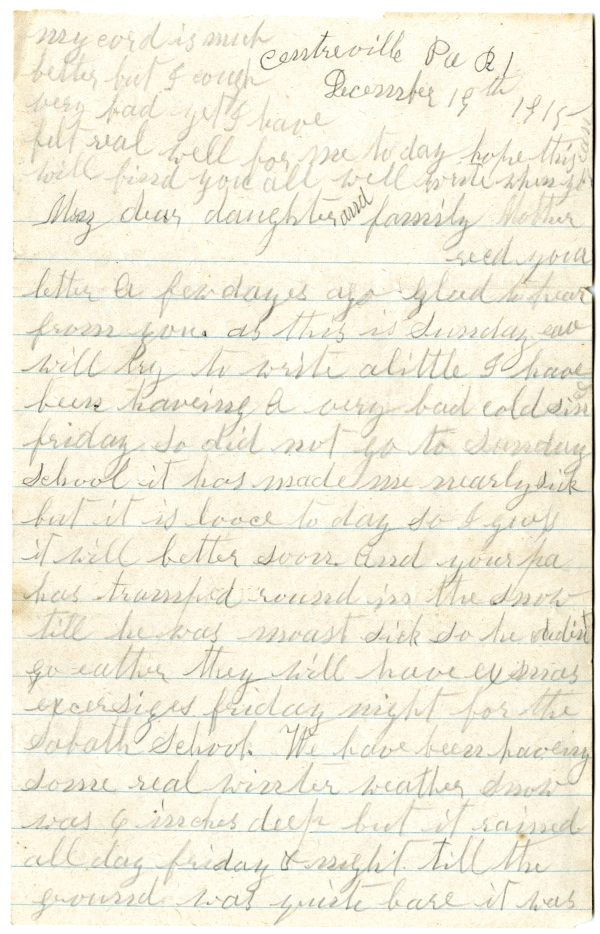 my cord is much
better but I cough
very bad yet I have
felt real well for me to day hope this
will find you all well write when you can
Centreville Pa R1
December 19th 1915
My dear daughter and family Mother
recd your
letter A few dayes ago glad to hear
from you. as this is Sunday eav
will try to write a little I have
been haveing A very bad cold sin
friday so did not go to Sunday
School it has made me nearly sick
but it is looce to day so I guess
it will better soon. And your pa
has tramped round in the snow
till he was moast sick so he dident
go eather they will have exmas
excersiges friday night for the
Sabath School. We have been haveing
some real winter weather Snow
was 6 inches deep but it rained
all day friday & night till the
ground was quite bare it was